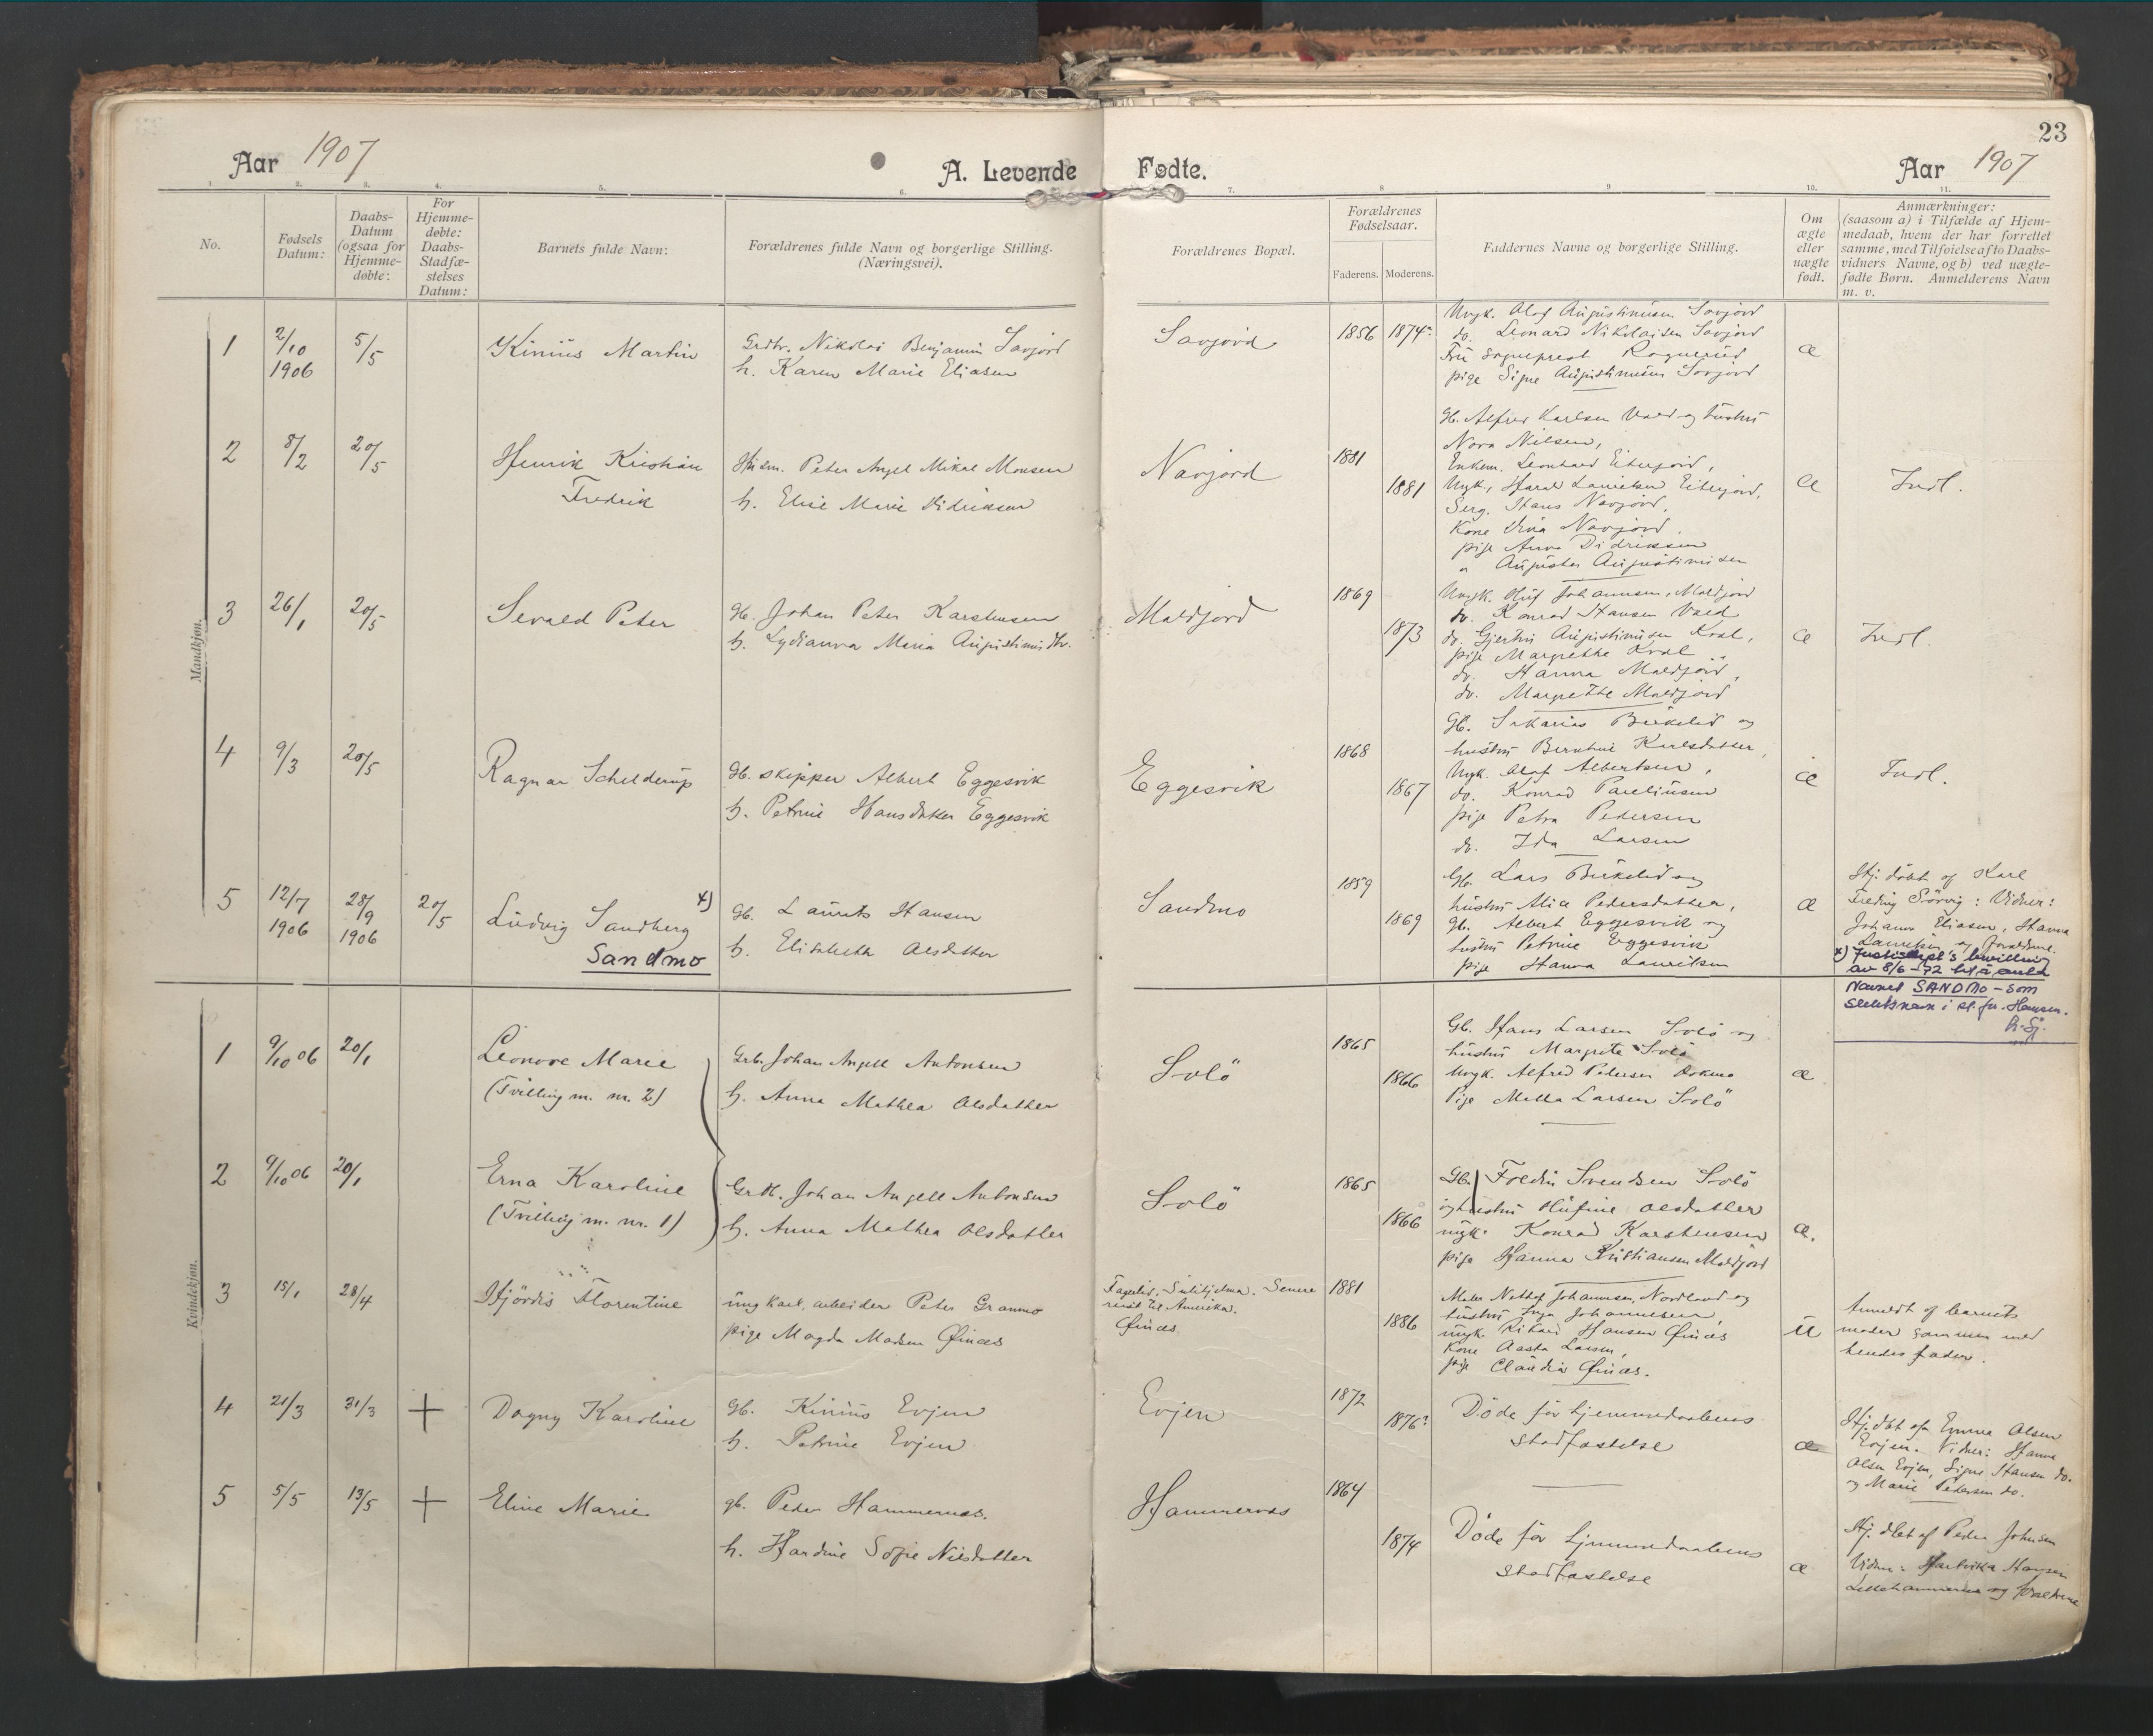 23
Aar 1907
A. Levende Fødte.
Aar 1907
1. 2. 3. 4. 5. 6. 7. 8 9 10. 11.
No.
Fødsels Datum:
Daabs-
Datum
(ogsaa for
Hjemme-
døbte:
For
Hjemme-
døbte:
Daabs-
Stadfæ-
stelses
Datum:
Barnets fulde Navn:
Forældrenes fulde Navn og borgerlige Stilling.
(Næringsvei).
Forældrenes Bopæl.
Forældrenes
Fødselsaar.
Faderens. Moderens.
Faddernes Navne og borgerlige Stilling.
Om
ægte
eller
uægte
født.
Anmærkninger:
(saasom a) i Tilfælde af Hjem-
medaab, hvem der har forrettet
samme, med Tilføielse af to Daabs-
vidners Navne, og b) ved uægte-
fødte Børn. Anmelderens Navn
m. v.
Mandkjøn.
1 2/10 1906 5/5
Kinius Martin
Nikolai Benjamin Savjord
h. Karen Marie Eliasen
Savjord
1856 1874
Ungk. Olof Augustinusen Savjord
do. Leonard Nikolaisen Savjord
Fru Sogneprest
pige Signe Augustinusen Savjord
æ
2 8/2 20/5
Henrik Kristian
Fredrik
Husm. Peter Angel Mikal Monsen
h. Elise Marie Didriksen
Navjord
1881
1881
gb. Alfred Karlsen Vald og hustru
Nora Nilsen,
Enkem. Leonhard Eiterjord,
Ungk. Harald Lauritsen Eiterjord,
Serg. Hans Navjord,
Kone Navjord,
pige Anna Didriksen
" Augusta Augustinusen
æ
Indl.
3 26/1 20/5
Sevald Peter
gb. Johan Peter Karstensen
h. Lydianna Maria Augustinusdtr.
Maldjord
1869
1873
Ungk. Oluf Johannesen, Maldjord
do. Konrad Hansen Vald
do. Gjertin Augustinusen Kval,
pige Margrethe Kval
do. Hanna Maldjord,
do. Margrethe Maldjord
æ
Indl.
4 9/3 20/5
Ragnar Schelderup
gb. skipper Albert Eggesvik
h. Petrine Hansdatter Eggesvik
Eggesvik
1868
1867
gb. Sakarias Birkelid og
hustru Berntine Karlsdatter,
Ungk. Olaf Albertsen,
do. Konrad Pareliusen
pige Petra Pedersen
do. Ida Larsen
æ
Indl.
5 12/7 1906 28/9 1906 20/5
Ludvig Sandberg x)
Sandmo
gb. Laurits Hansen
h. Elisabeth Olsdatter
Sandmo
1859
1869
Gb. Lars Birkelid og
hustru Alice Pedersdatter,
gb. Albert Eggesvik og
hustru Petrine Eggesvik
pige Hanna Lauritsen
æ
Hj. döbt af Karl
Fredrig Sörvig: Vidner:
Johann Eliasen, Hanna
Lauritsen og forældrene.
x) Justisdept's bevilling
av 8/6-72 til å anta
navnet SANDMO - som
slektsnavn i st. for Hansen.
Kvindekjøn.
1 9/10 06 20/1
Leonore Marie
(Tvilling m. nr. 2)
Grb. Johan Angell Antonsen
h. Anna Mathea Olsdatter
Solö
1865
1866
Gb. Hans Larsen Solö og
hustru Margrete Solö
Ungk. Alfred Pedersen
Pige Milla Larsen Solö
æ
2 9/10 06 20/1
Erna Karoline
(Tvilling m. nr. 1)
Grb. Johan Angell Antonsen
h. Anna Mathea Olsdatter
Solö
1865
1866
Gb. Fredin Svendsen Solö
og hustru Olufine Olsdatter
ungk. Konrad Karstensen
pige Hanna Kristiansen Maldjord
æ.
3 15/1 28/4
Hjördis Florentine
ungkarl, arbeider Peter Granmo
pige Magda Madsen Ofinæs
Fagerlid, Sulitjelma. Senere
reist til Amerika.
Ofinæs
1881
1886
Johannesen, Nordland og
hustru Inga Johannesen,
ungk. Rikard Hansen Ofinæs
Kone Aasta Larsen,
pige Claudia Ofinæs.
u
Anmeldt af barnets
moder sammen med
hendes fader.
4 21/3 31/3 +
Dagny Karoline
gb. Kinius Evjen
h. Petrine Evjen
Evjen
1872
1876?
Döde för hjemmedaabens
stadfæstelse
æ
Hj. dbt af Emma Olsen
Evjen. Vidner: Hanna
Olsen Evjen, Signe Hansen do.
og Marie Pedersen do.
5 5/5 13/5 +
Eline Marie
gb. Peder Hammernæs.
h. Hardine Sofie Nilsdatter
Hammernæs
1864
1874
Döde för hjemmedaabens
stadfæstelse
æ
Hj. dbt af Peder Johnsen
Vidner: Hansen
og forældrene